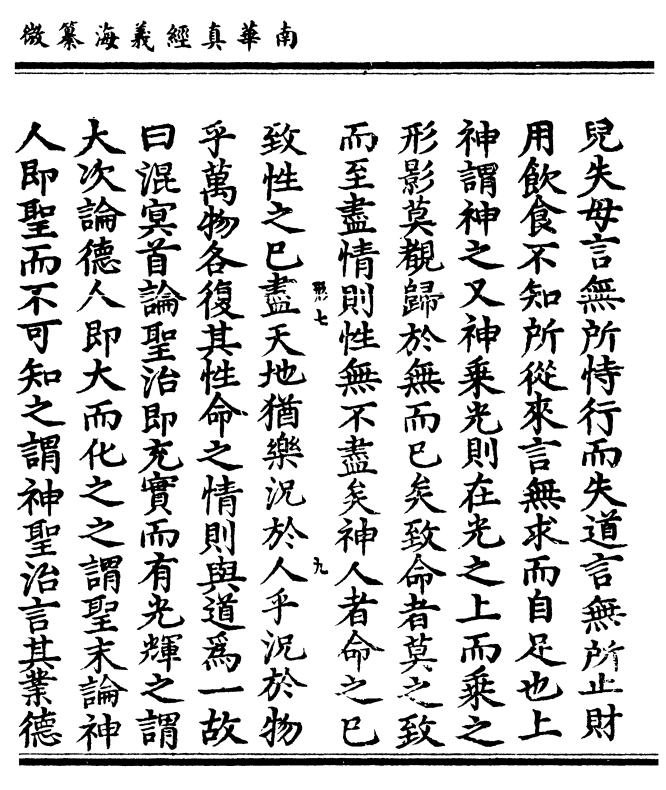 南華真經義海纂微
兒失母言無所恃行而失道言無所止財
用飲食不知所從來言無求而自足也上
神謂神之又神乘光則在光之上而乘之
形影莫覩歸於無而已矣致命者莫之致
而至盡情則性無不盡矣神人者命之已
致性之已盡天地猶樂況於人乎況於物
形七
九
乎萬物各復其性命之情則與道為一故
曰混冥首論聖治即充實而有光輝之謂
大次論德人即大而化之之謂聖末論神
人即聖而不可知之謂神聖治言其業德